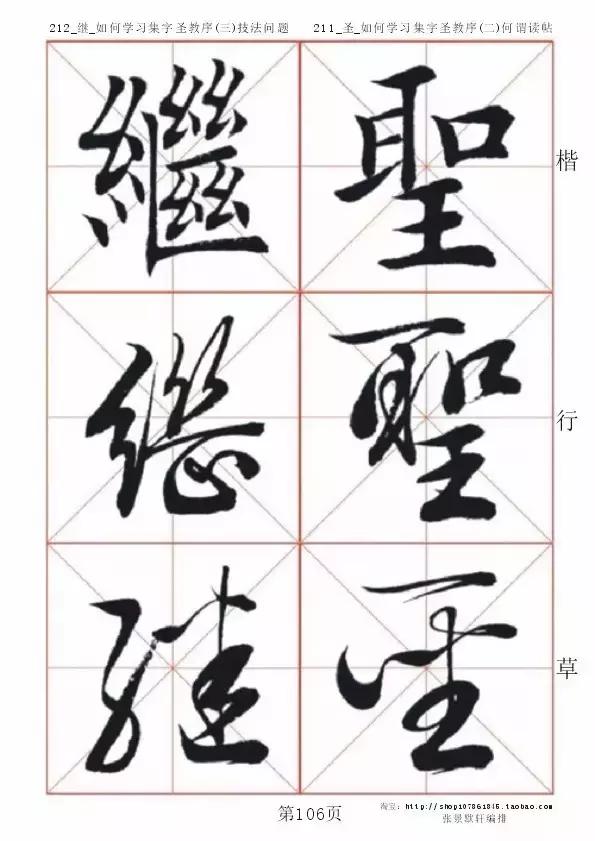 212_继_如何学习集字圣教序(三)技法问题 211_圣_如何学习集字圣教序(二)何谓读帖
繼 聖 楷
継 聖 行
继 圣 草
第106页
淘宝：http://shop107861815.taobao.com
张景默轩编排